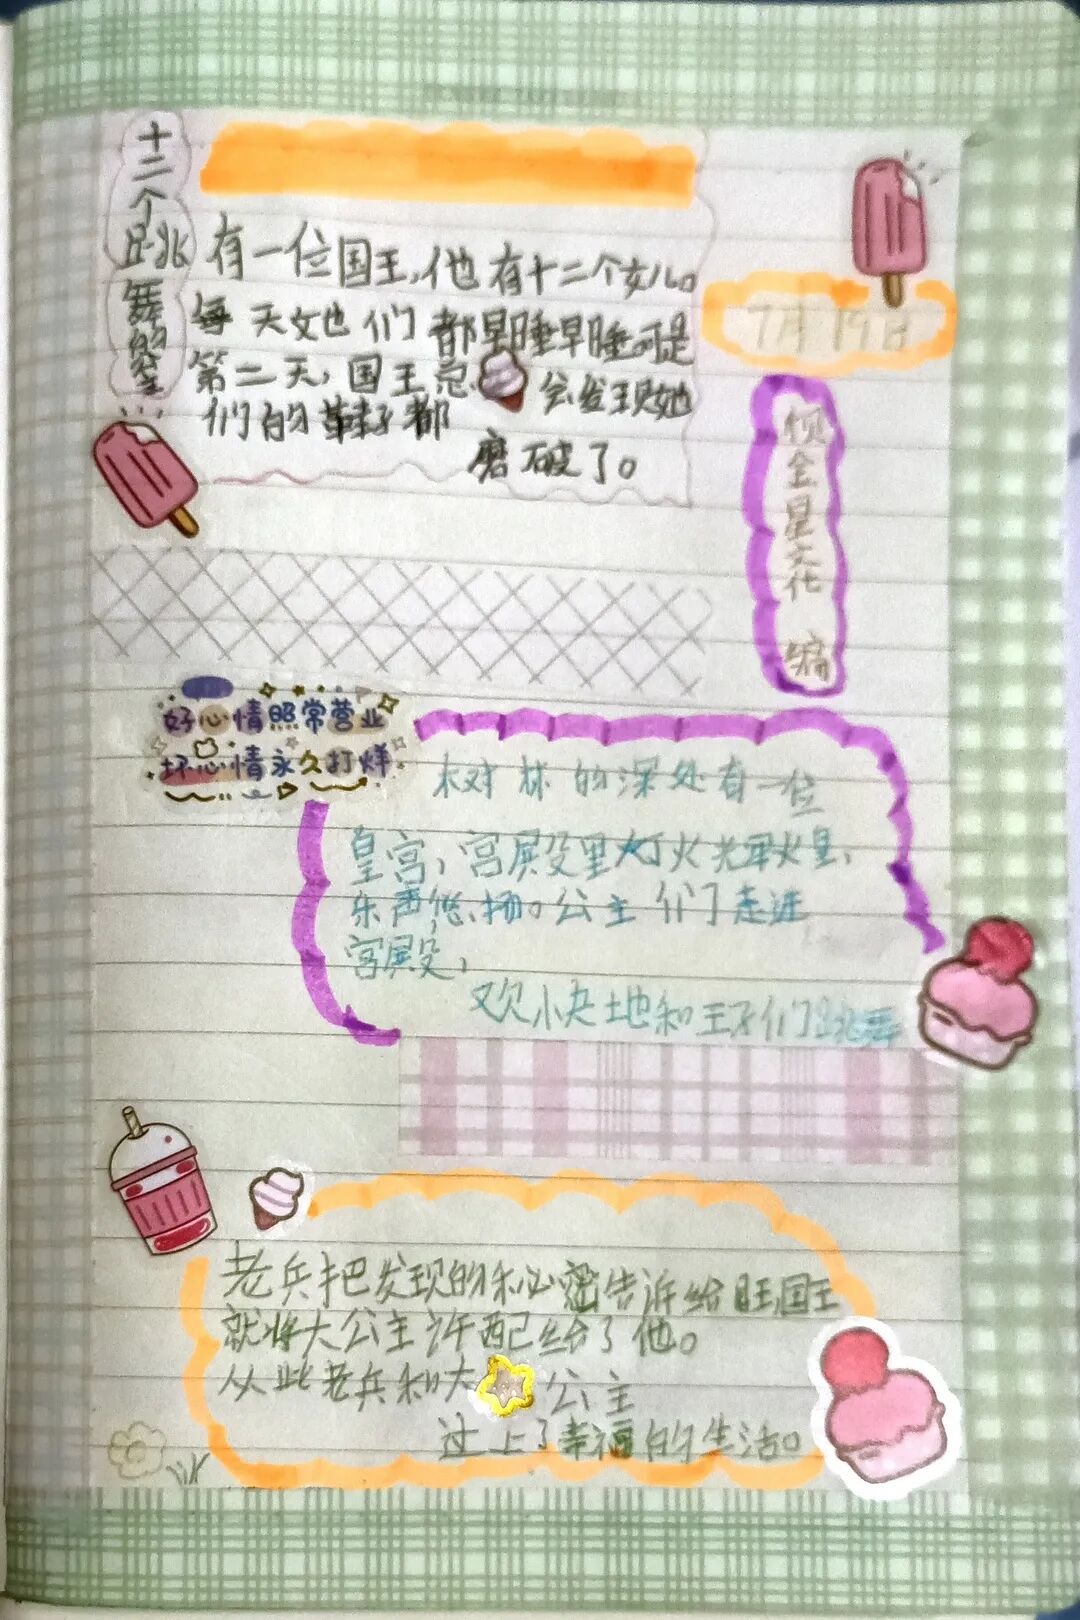 十二个跳舞的
有一位国王,他有十二个女儿。
每天她们都早睡早睡可是
第二天,国王总会发现她
们的鞋子都
磨破了。
7月19日
金星文化 编
好心情照常营业
坏心情永久打烊
树林的深处有一位
皇宫,宫殿里灯火光
乐声悠扬。公主们走进
宫殿,
欢快地和王子们跳舞
老兵把发现的秘密告诉给国王
就将大公主许配给了他。
从此老兵和大公主
过上了幸福的生活。